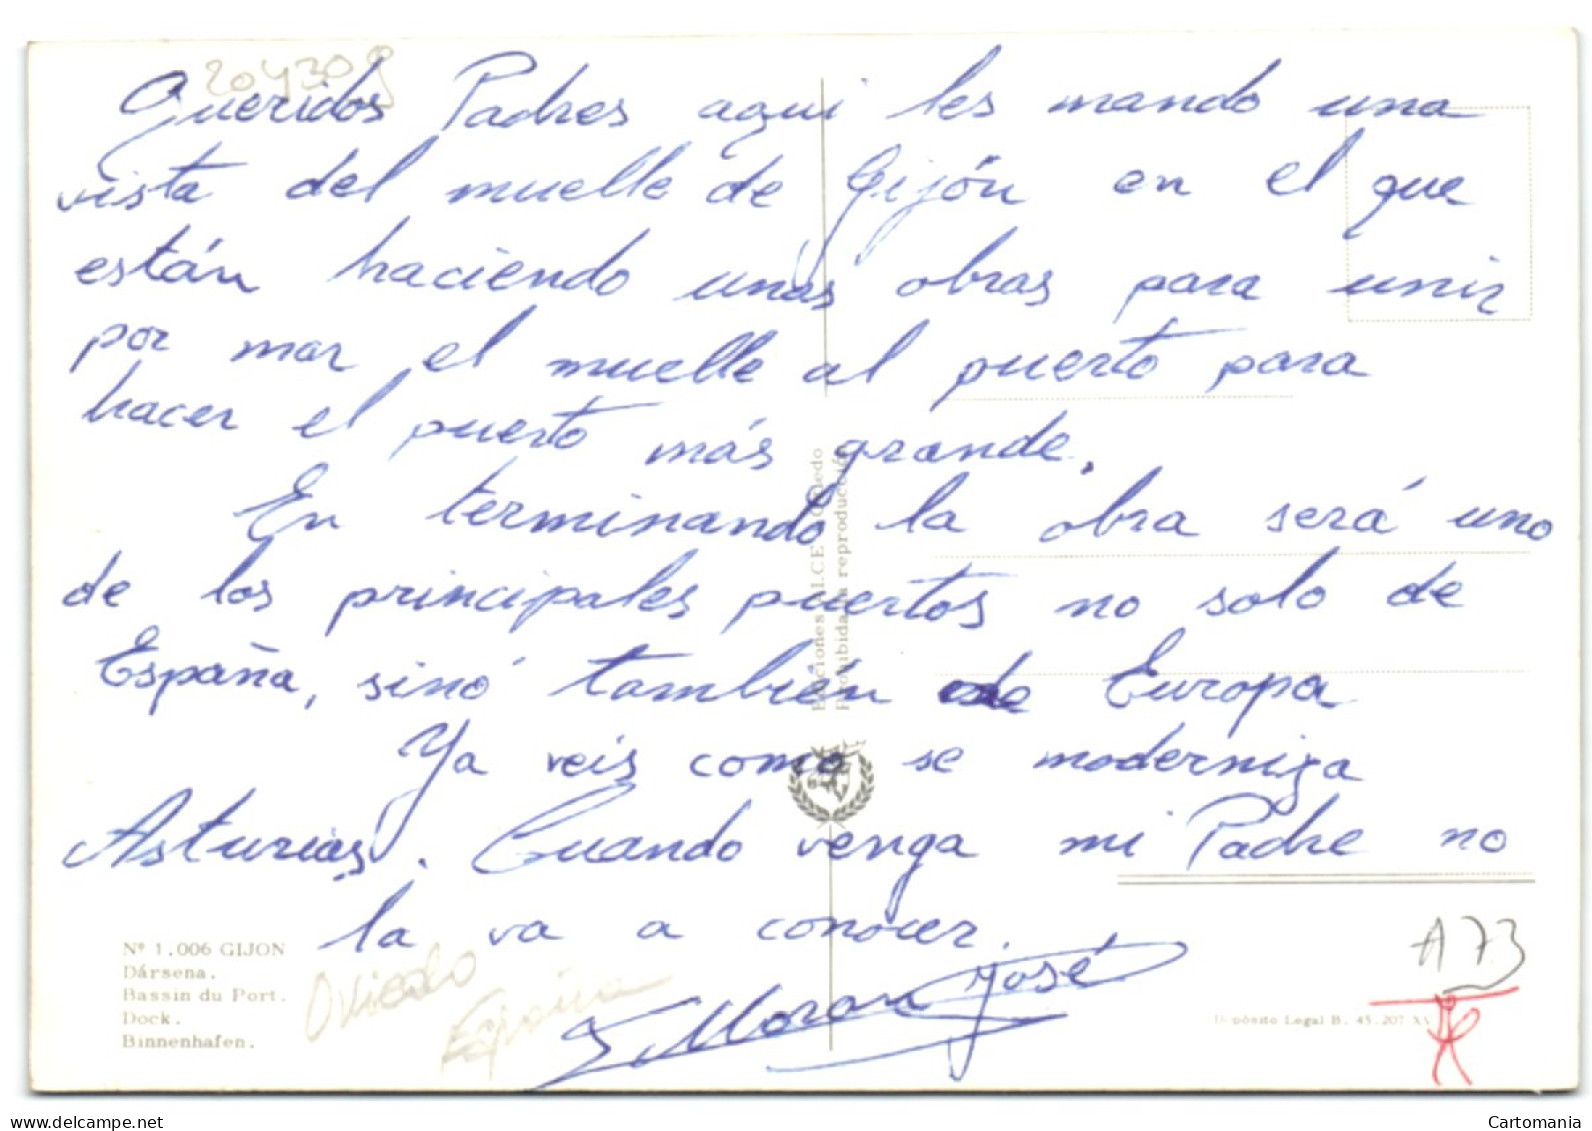 204309
Queridos Padres aqui les mando una
vista del muelle de Gijón en el que
están haciendo unas obras para unir
por mar el muelle al puerto para
hacer el puerto más grande.
En terminando la obra será uno
de los principales puertos no solo de
España, sinó también de Europa
Ya veis como se moderniza
Asturias. Cuando venga mi Padre no
la va a conocer.
José
Moran
Oviedo
España
A73
Nº 1.006 GIJON
Dársena.
Bassin du Port.
Dock.
Binnenhafen.
Ediciones ALCE Oviedo
Prohibida la reproducción
Depósito Legal B. 45.207
www.delcampe.net
Cartomania